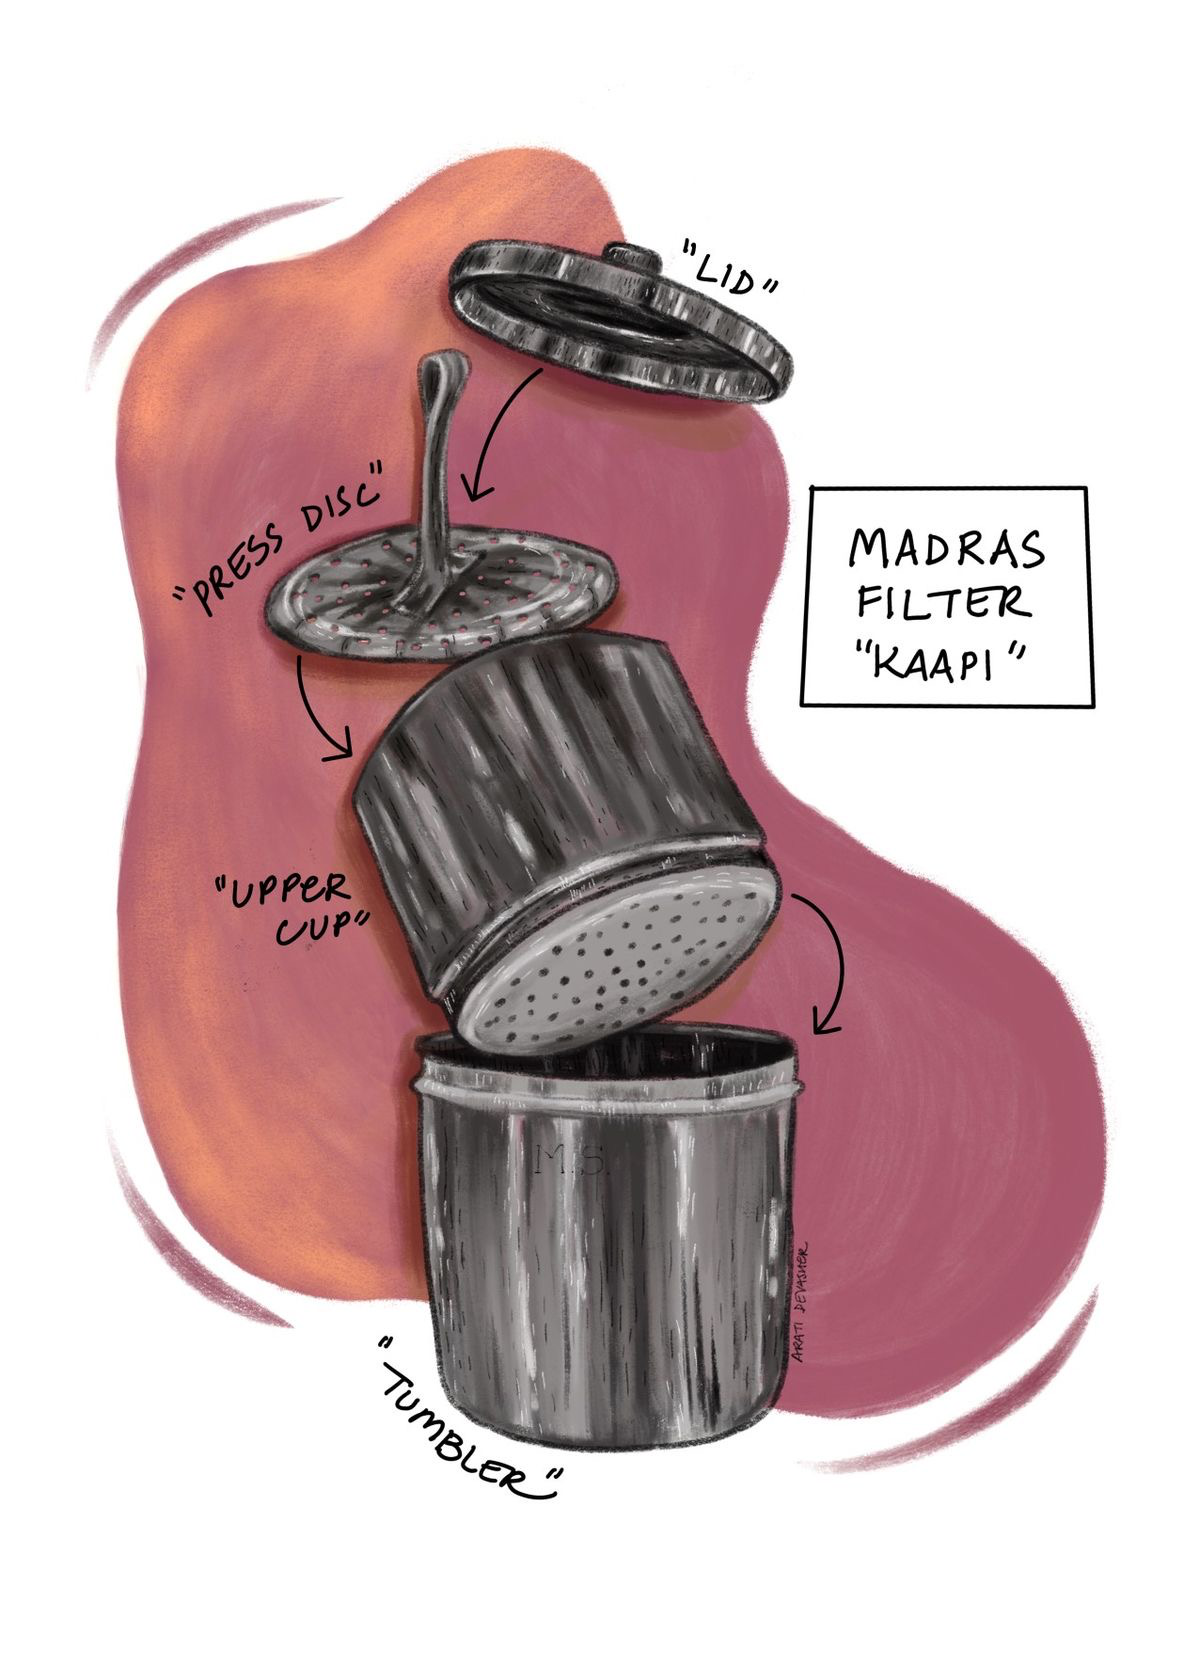 "LID"
"PRESS DISC"
MADRAS
FILTER
"KAAPI"
"UPPER
CUP"
M.S.
ARATI DEVASHER
"TUMBLER"